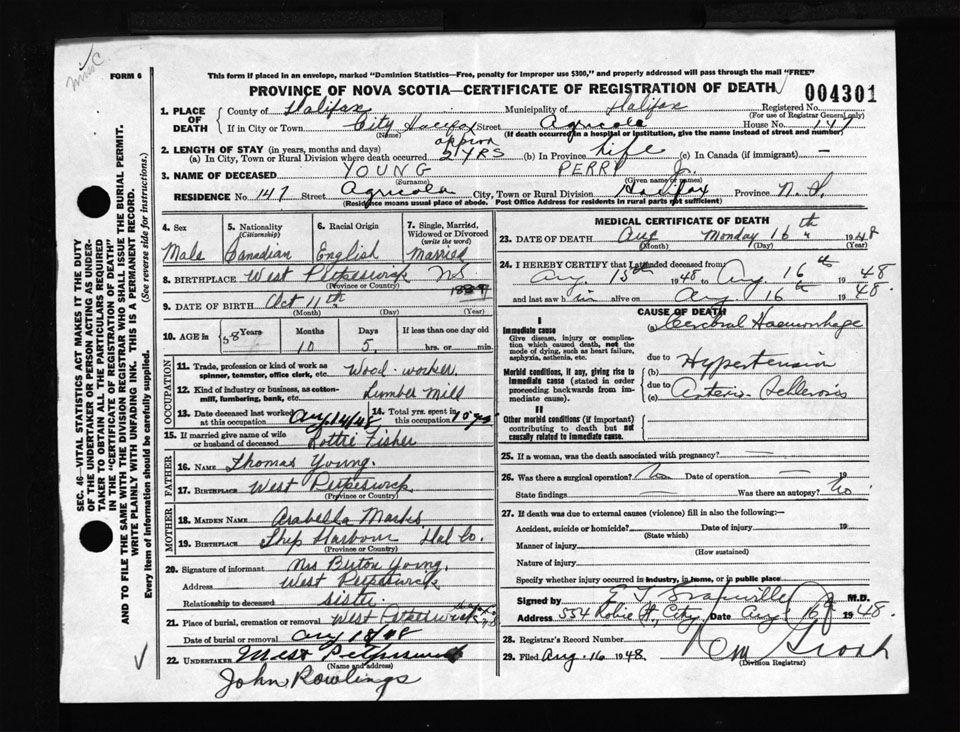 Miss C.
FORM 6
This form if placed in an envelope, marked "Dominion Statistics—Free, penalty for improper use $300," and properly addressed will pass through the mail "FREE"
PROVINCE OF NOVA SCOTIA—CERTIFICATE OF REGISTRATION OF DEATH
004301
1. PLACE OF DEATH
County of Halifax Municipality of Halifax Registered No.
(For use of Registrar General only)
If in City or Town City Halifax Street Agricola House No. 147
(Name) (If death occurred in a hospital or institution, give the name instead of street and number)
2. LENGTH OF STAY (in years, months and days)
approx
(a) In City, Town or Rural Division where death occurred 2 YRS (b) In Province Life (c) In Canada (if immigrant) —
3. NAME OF DECEASED YOUNG PERRY Jr.
(Surname) (Given name or names)
RESIDENCE No 147 Street Agricola City, Town or Rural Division Halifax Province N.S.
(Residence means usual place of abode. Post Office Address for residents in rural parts not sufficient)
4. Sex
Male
5. Nationality
(Citizenship)
Canadian
6. Racial Origin
English
7. Single, Married, Widowed or Divorced
(write the word)
Married
8. BIRTHPLACE West Petpeswick NS
(Province or Country)
9. DATE OF BIRTH Oct 11th 1889
(Month) (Day) (Year)
10. AGE in
58 Years
Months
10
Days
5.
If less than one day old
hrs. or min.
OCCUPATION
11. Trade, profession or kind of work as spinner, teamster, office clerk, etc. Wood-worker
12. Kind of industry or business, as cotton-mill, lumbering, bank, etc. Lumber Mill
13. Date deceased last worked at this occupation Aug 14/48
14. Total yrs. spent in this occupation 10 yrs
15. If married give name of wife or husband of deceased Lottie Fisher
FATHER
16. NAME Thomas Young.
17. BIRTHPLACE West Petpeswick
(Province or Country)
MOTHER
18. MAIDEN NAME Arabella Marks
19. BIRTHPLACE Ship Harbour Hal Co.
(Province or Country)
20. Signature of informant Mrs Burton Young.
Address West Petpeswick
Relationship to deceased sister
21. Place of burial, cremation or removal West Petpeswick
Date of burial or removal Aug 18/48
22. UNDERTAKER West Petpeswick
(Name and address)
John Rowlings
MEDICAL CERTIFICATE OF DEATH
23. DATE OF DEATH Aug Monday 16th 1948
(Month) (Day) (Year)
24. I HEREBY CERTIFY that I attended deceased from
Aug. 15th 1948 to Aug. 16th 1948
and last saw him alive on Aug 16th 1948.
CAUSE OF DEATH
I
Immediate cause
Give disease, injury or complication which caused death, not the mode of dying, such as heart failure, asphyxia, asthenia, etc.
(a) Cerebral Haemorrhage
due to
Morbid conditions, if any, giving rise to immediate cause (stated in order proceeding backwards from immediate cause).
(b) Hypertension
due to
(c) Arterio-Sclerosis
II
Other morbid conditions (if important) contributing to death but not causally related to immediate cause.
25. If a woman, was the death associated with pregnancy? —
26. Was there a surgical operation? No Date of operation — 19
State findings — Was there an autopsy? No
27. If death was due to external causes (violence) fill in also the following:—
Accident, suicide or homicide? Date of injury 19
(State which)
Manner of injury
(How sustained)
Nature of injury
Specify whether injury occurred in industry, in home, or in public place
Signed by E J Granville M.D.
Address 554 Robie St., City. Date Aug 16 1948.
28. Registrar's Record Number
29. Filed Aug. 16 1948.
(Division Registrar)
SEC. 46—VITAL STATISTICS ACT MAKES IT THE DUTY OF THE UNDERTAKER OR PERSON ACTING AS UNDERTAKER TO OBTAIN ALL THE PARTICULARS REQUIRED IN THE "CERTIFICATE OF REGISTRATION OF DEATH" AND TO FILE THE SAME WITH THE DIVISION REGISTRAR WHO SHALL ISSUE THE BURIAL PERMIT.
WRITE PLAINLY WITH UNFADING INK. THIS IS A PERMANENT RECORD.
Every item of information should be carefully supplied. (See reverse side for instructions.)